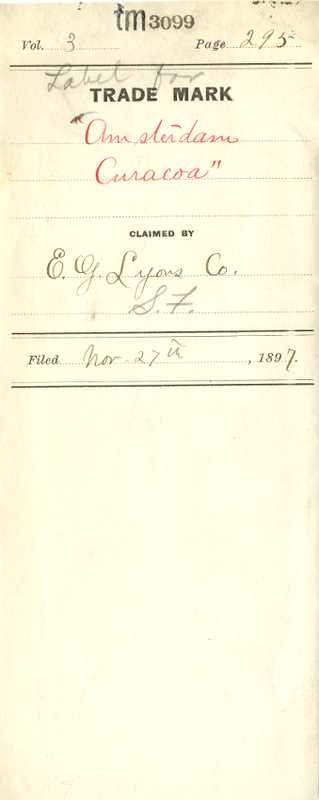 tm3099
Vol. 3 Page 295
Label for
TRADE MARK
"Amsterdam
Curacoa"
CLAIMED BY
E. G. Lyons Co.
S.F.
Filed Nov. 27th, 1897.